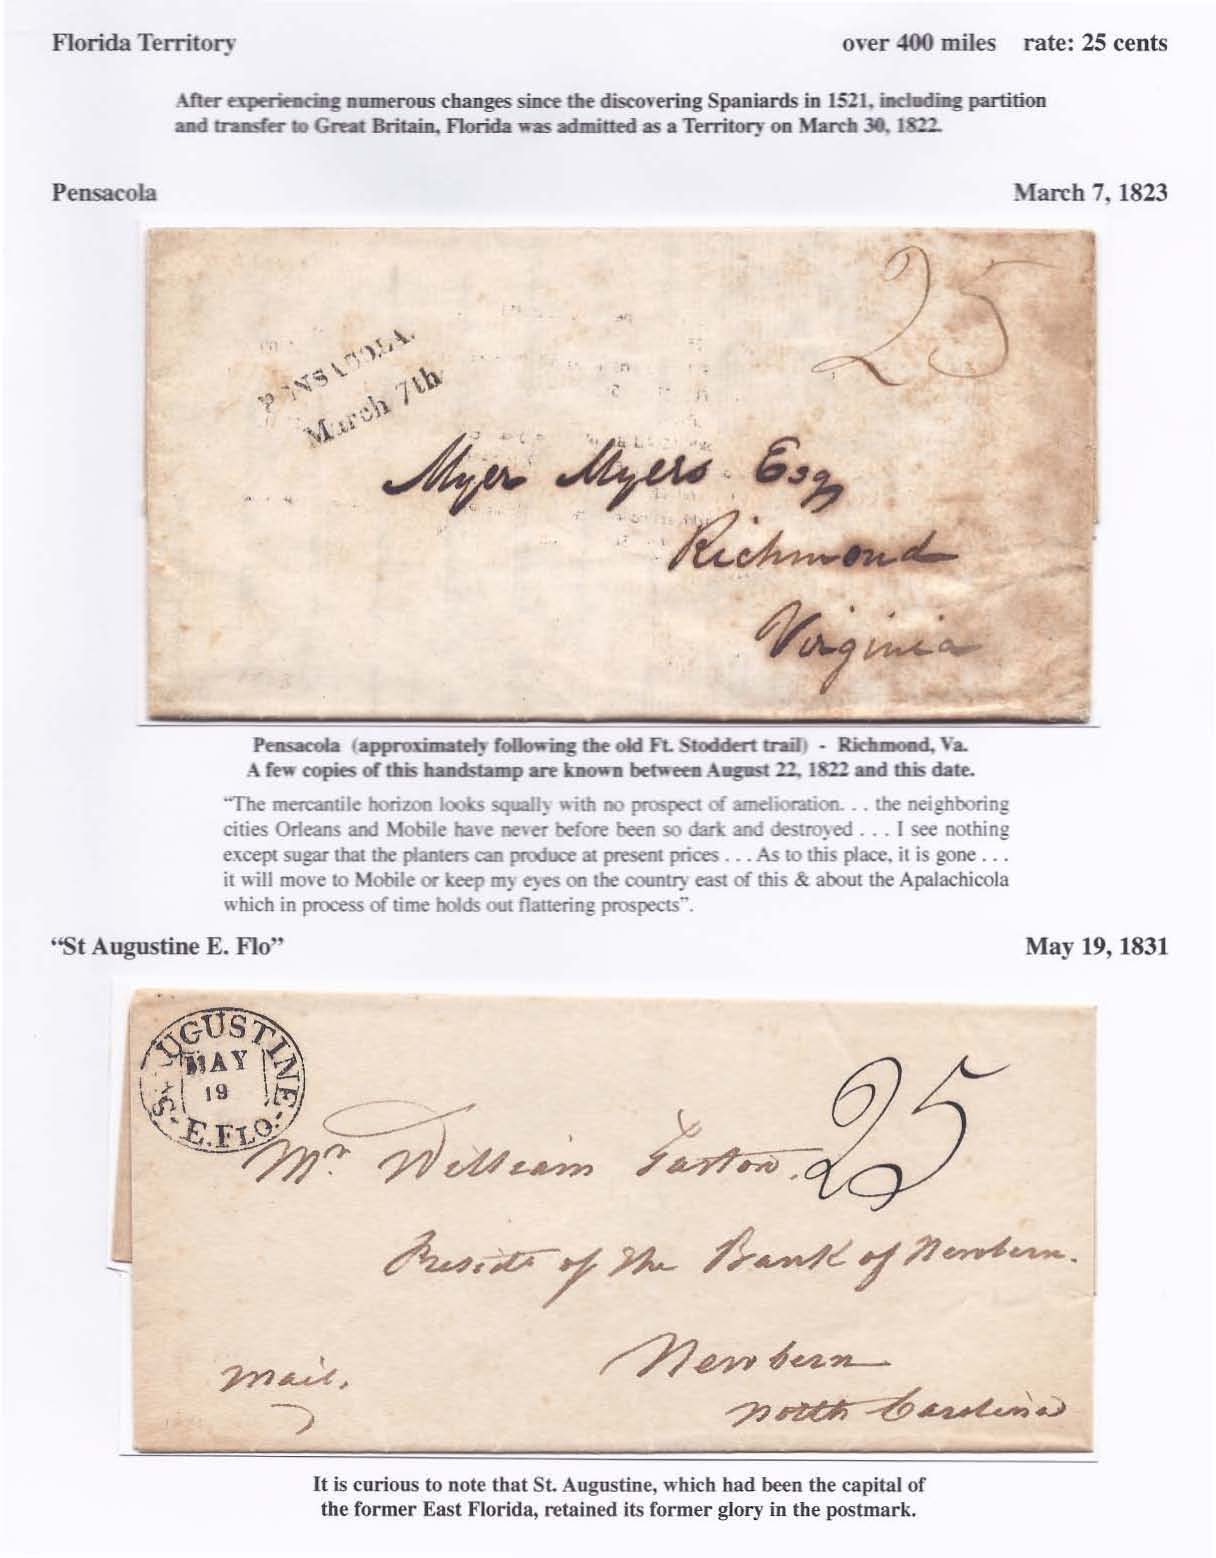 Florida Territory over 400 miles rate: 25 cents
After experiencing numerous changes since the discovering Spaniards in 1521, including partition
and transfer to Great Britain, Florida was admitted as a Territory on March 30, 1822.
Pensacola March 7, 1823
25
PENSACOLA.
March 7th
Myer Myers Esq
Richmond
Virginia
Pensacola (approximately following the old Ft. Stoddert trail) - Richmond, Va.
A few copies of this handstamp are known between August 22, 1822 and this date.
“The mercantile horizon looks squally with no prospect of amelioration. . . the neighboring
cities Orleans and Mobile have never before been so dark and destroyed . . . I see nothing
except sugar that the planters can produce at present prices . . . As to this place, it is gone . . .
it will move to Mobile or keep my eyes on the country east of this & about the Apalachicola
which in process of time holds out flattering prospects”.
“St Augustine E. Flo” May 19, 1831
St AUGUSTINE
MAY
19
E. FLO.
25
Mr. William Gaston.
Presidt of the Bank of Newbern.
Newbern
Mail.
North Carolina
It is curious to note that St. Augustine, which had been the capital of
the former East Florida, retained its former glory in the postmark.